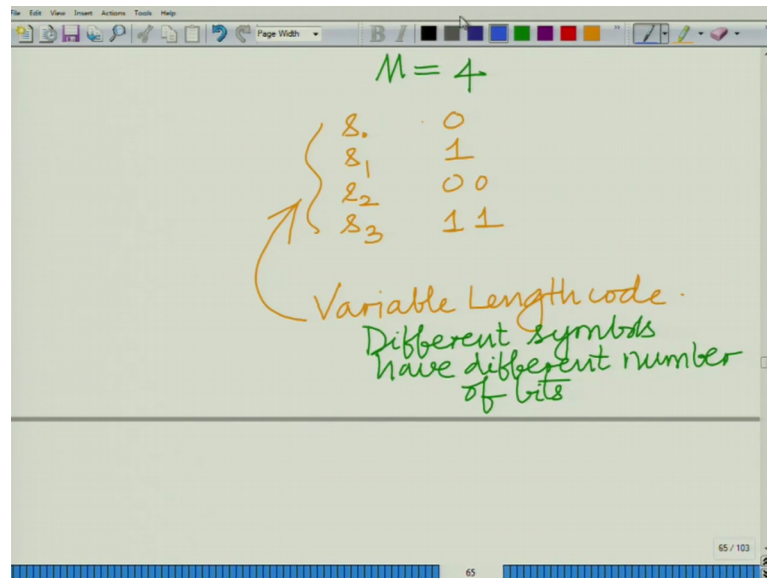 File Edit View Insert Actions Tools Help
Page Width
B I
M = 4
s. 0
s1 1
s2 00
s3 11
Variable Length code.
Different symbols
have different number
of bits
65 / 103
65